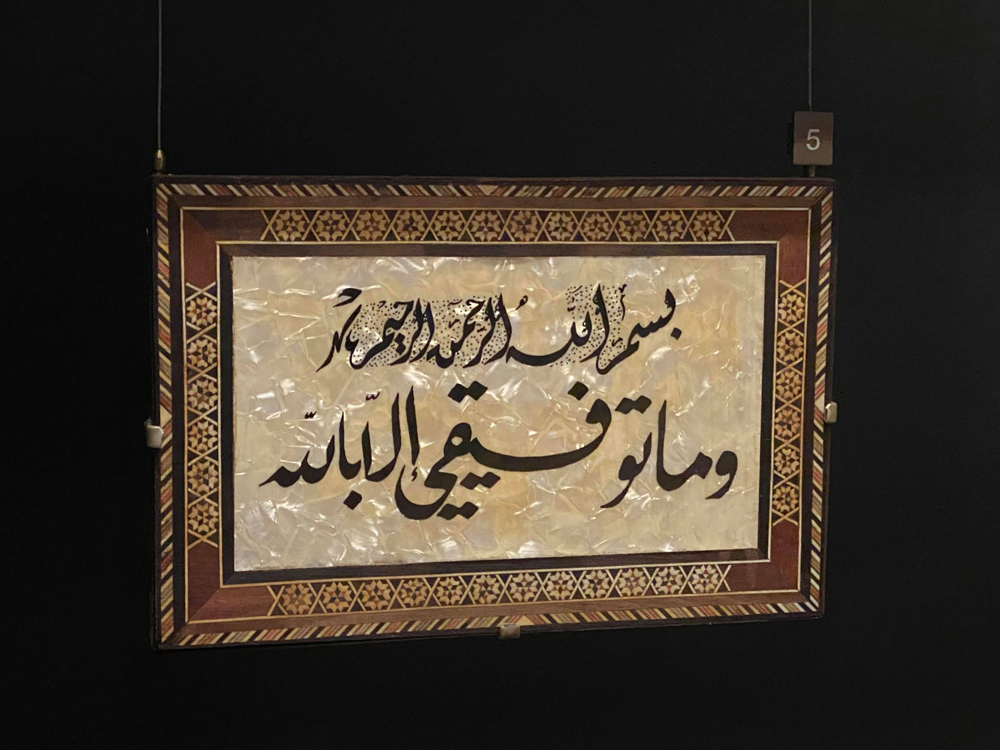 5
بسم الله الرحمن الرحيم
وما توفيقي إلا بالله